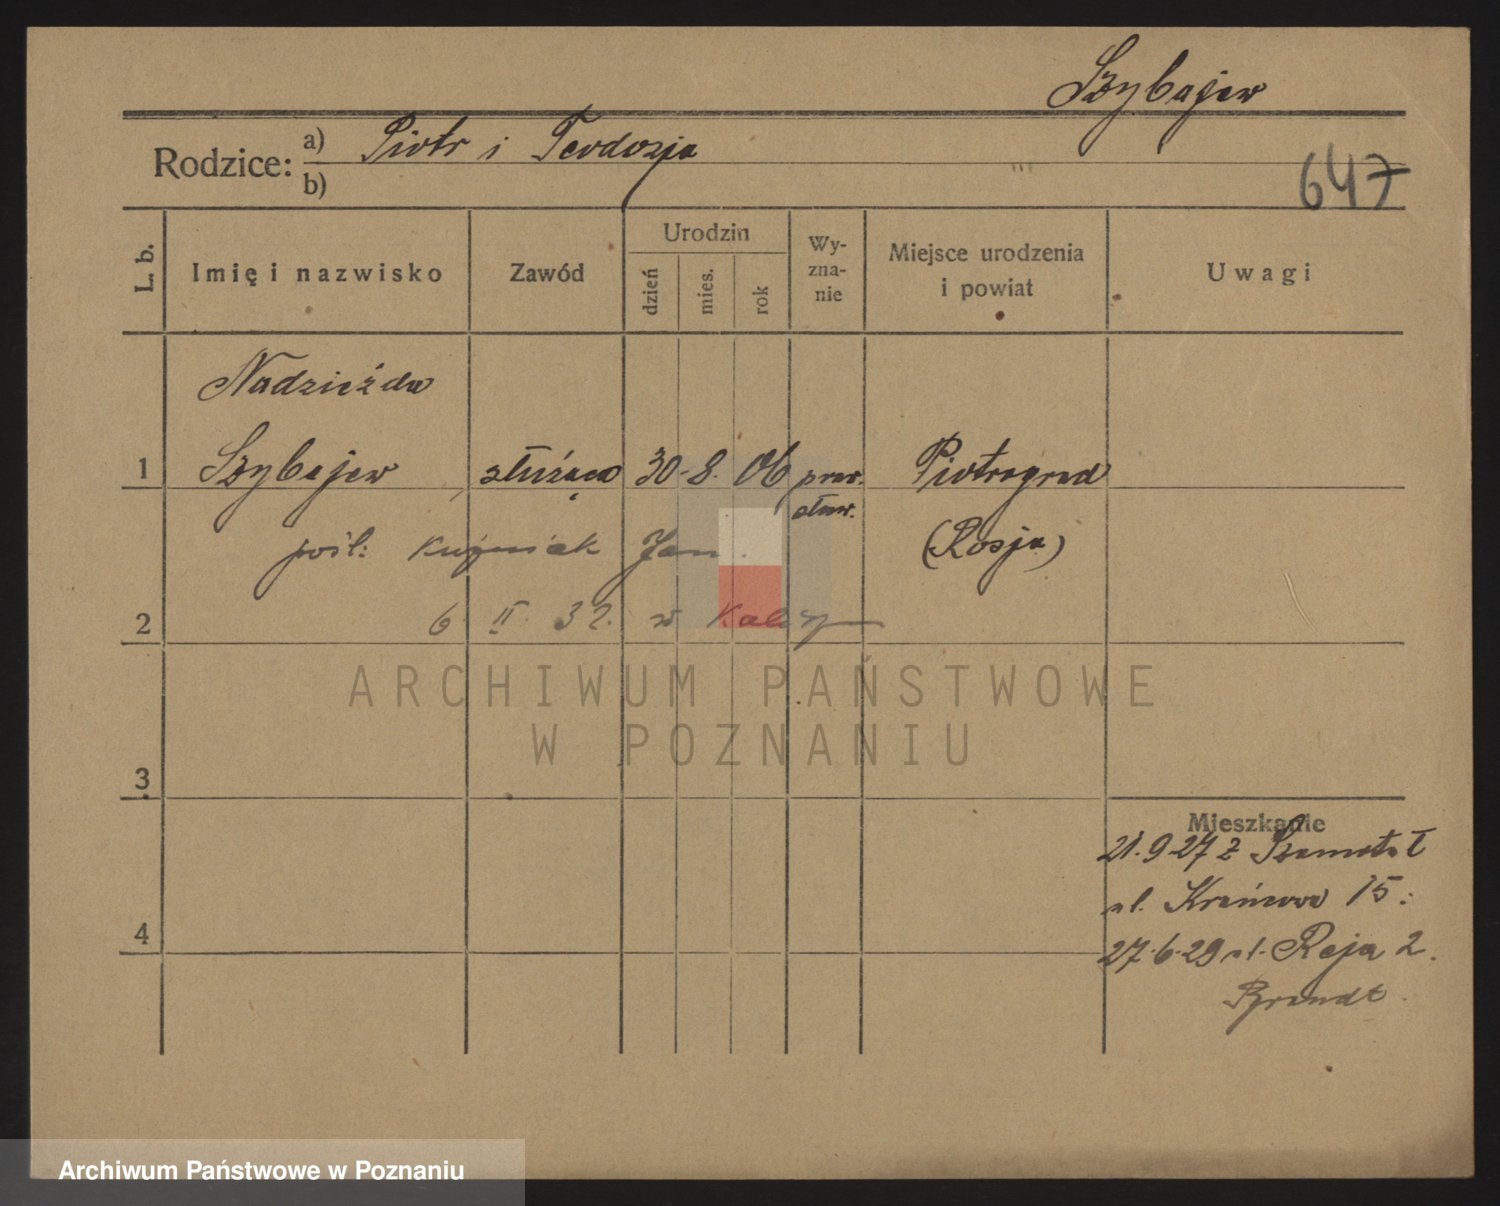 Szybajew
Rodzice: a) Piotr i Teodozja
b)
647
L. b.
Imię i nazwisko
Zawód
Urodzin
dzień
mies.
rok
Wy-
zna-
nie
Miejsce urodzenia
i powiat
Uwagi
Nadzieżda
1 Szybajew służąca 30 - 8. 06 praw. Piotrograd
sław.
pośl: Kuźniak Jan. (Rosja)
2 6 II. 32. w
ARCHIWUM PAŃSTWOWE
W POZNANIU
3
Mieszkanie
21.9.27 z Szamotuł
ul. Krańcowa 15.
4
27.6.29 ul. Reja 2.
Brandt.
Archiwum Państwowe w Poznaniu